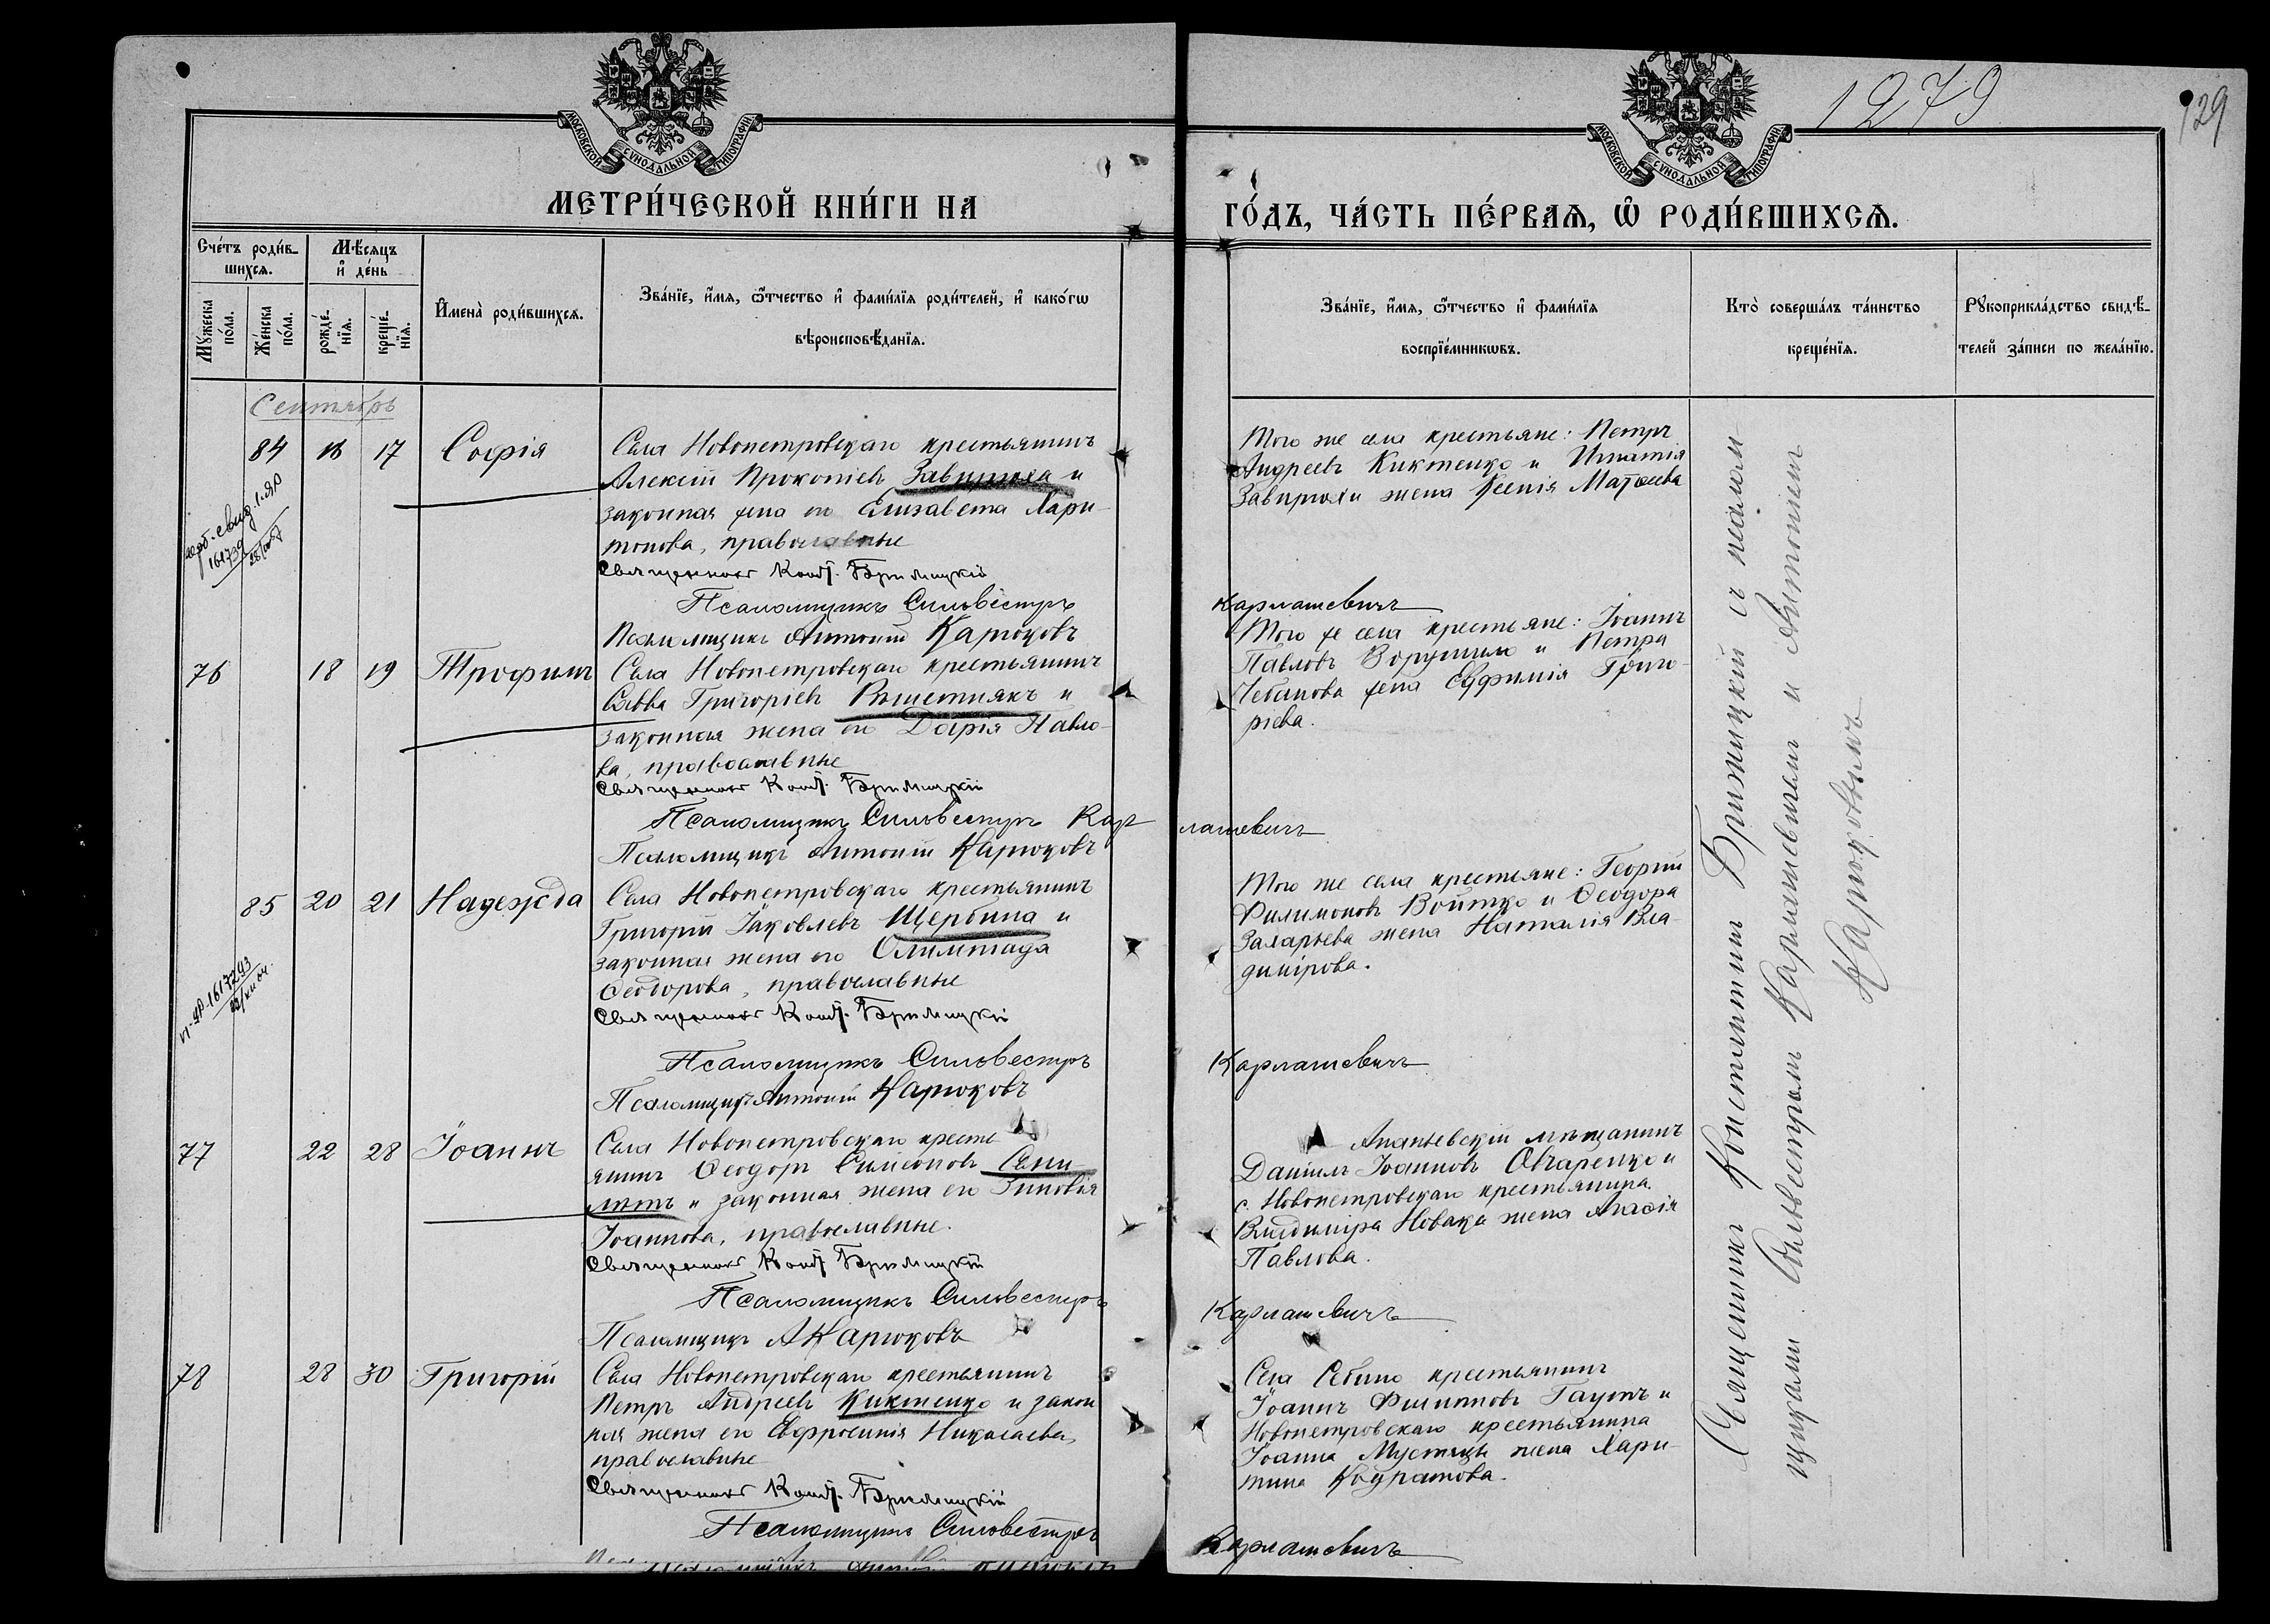 1279
129
МОСКОВСКОЙ СУНОДАЛЬНОЙ ТИПОГРАФІИ
МОСКОВСКОЙ СУНОДАЛЬНОЙ ТИПОГРАФІИ
МЕТРИ́ЧЕСКОЙ КНИ́ГИ НА
ГО́ДЪ, ЧА́СТЬ ПЕ́РВАѦ, Ѡ҆ РОДИ́ВШИХСѦ.
Сче́тъ роди́в-
шихсѧ.
Мѣ́сѧцъ
и҆ де́нь
Мꙋ́жеска
по́ла.
Же́нска
по́ла.
рожде́-
нїѧ.
креще́-
нїѧ.
И҆мена̀ роди́вшихсѧ.
Зва́нїе, и҆́мѧ, ѻ҆́тчество и҆ фами́лїѧ роди́телей, и҆ како́гѡ
вѣроисповѣ́данїѧ.
Зва́нїе, и҆́мѧ, ѻ҆́тчество и҆ фами́лїѧ
воспрїе́мникѡвъ.
Кто̀ соверша́лъ та́инство
креще́нїѧ.
Рꙋкоприкла́дство свидѣ́-
телей за́писи по жела́нїю.
Сентябрь
84 16 17 Софія
Села Новопетровскаго крестьянинъ
Алексій Прокопіевъ Завирюха и
законная жена его Елизавета Хари-
тонова, православные
Священникъ Конст. Брижицкій
Псаломщикъ Сильвестръ Карпашевичъ
Псаломщикъ Антоній Карюковъ
Того же села крестьяне: Петръ
Андреевъ Киктенко и Игнатія
Завирюхи жена Ксенія Матѳеева
76 18 19 Трофимъ
Села Новопетровскаго крестьянинъ
Савва Григоріевъ Решетнякъ и
законная жена его Дарія Павло-
ва, православные
Священникъ Конст. Брижицкій
Псаломщикъ Сильвестръ Карпашевичъ
Псаломщикъ Антоній Карюковъ
Того же села крестьяне: Іоаннъ
Павловъ и Петра
Чебанова жена Евфимія Григо-
ріева.
85 20 21 Надежда
Села Новопетровскаго крестьянинъ
Григорій Іаковлевъ Щербина и
законная жена его Олимпіада
Ѳеодорова, православные
Священникъ Конст. Брижицкій
Псаломщикъ Сильвестръ Карпашевичъ
Псаломщикъ Антоній Карюковъ
Того же села крестьяне: Георгій
Филимоновъ Войтко и Ѳеодора
Захарьева жена Наталія Вла-
димірова.
77 22 28 Іоаннъ
Села Новопетровскаго кресть
янинъ Ѳеодоръ Симеоновъ
и законная жена его Зиновія
Іоаннова, православные.
Священникъ Конст. Брижицкій
Псаломщикъ Сильвестръ Карпашевичъ
Псаломщикъ А Карюковъ
Ананьевскій мѣщанинъ
Даніилъ Іоанновъ Овчаренко и
с. Новопетровскаго крестьянина
Владиміра Новака жена
Павлова.
78 28 30 Григорій
Села Новопетровскаго крестьянинъ
Петръ Андреевъ Киктенко и закон
ная жена его Евфросинія Николаева,
православные
Священникъ Конст. Брижицкій
Псаломщикъ Сильвестръ Карпашевичъ
Села Себино крестьянинъ
Іоаннъ Филипповъ и
Новопетровскаго крестьянина
Іоанна жена Хари-
тина Кодратова.
Священникъ Константинъ Брижицкій съ псалом-
щиками Сильвестромъ Карпашевичемъ и Антоніемъ
Карюковымъ